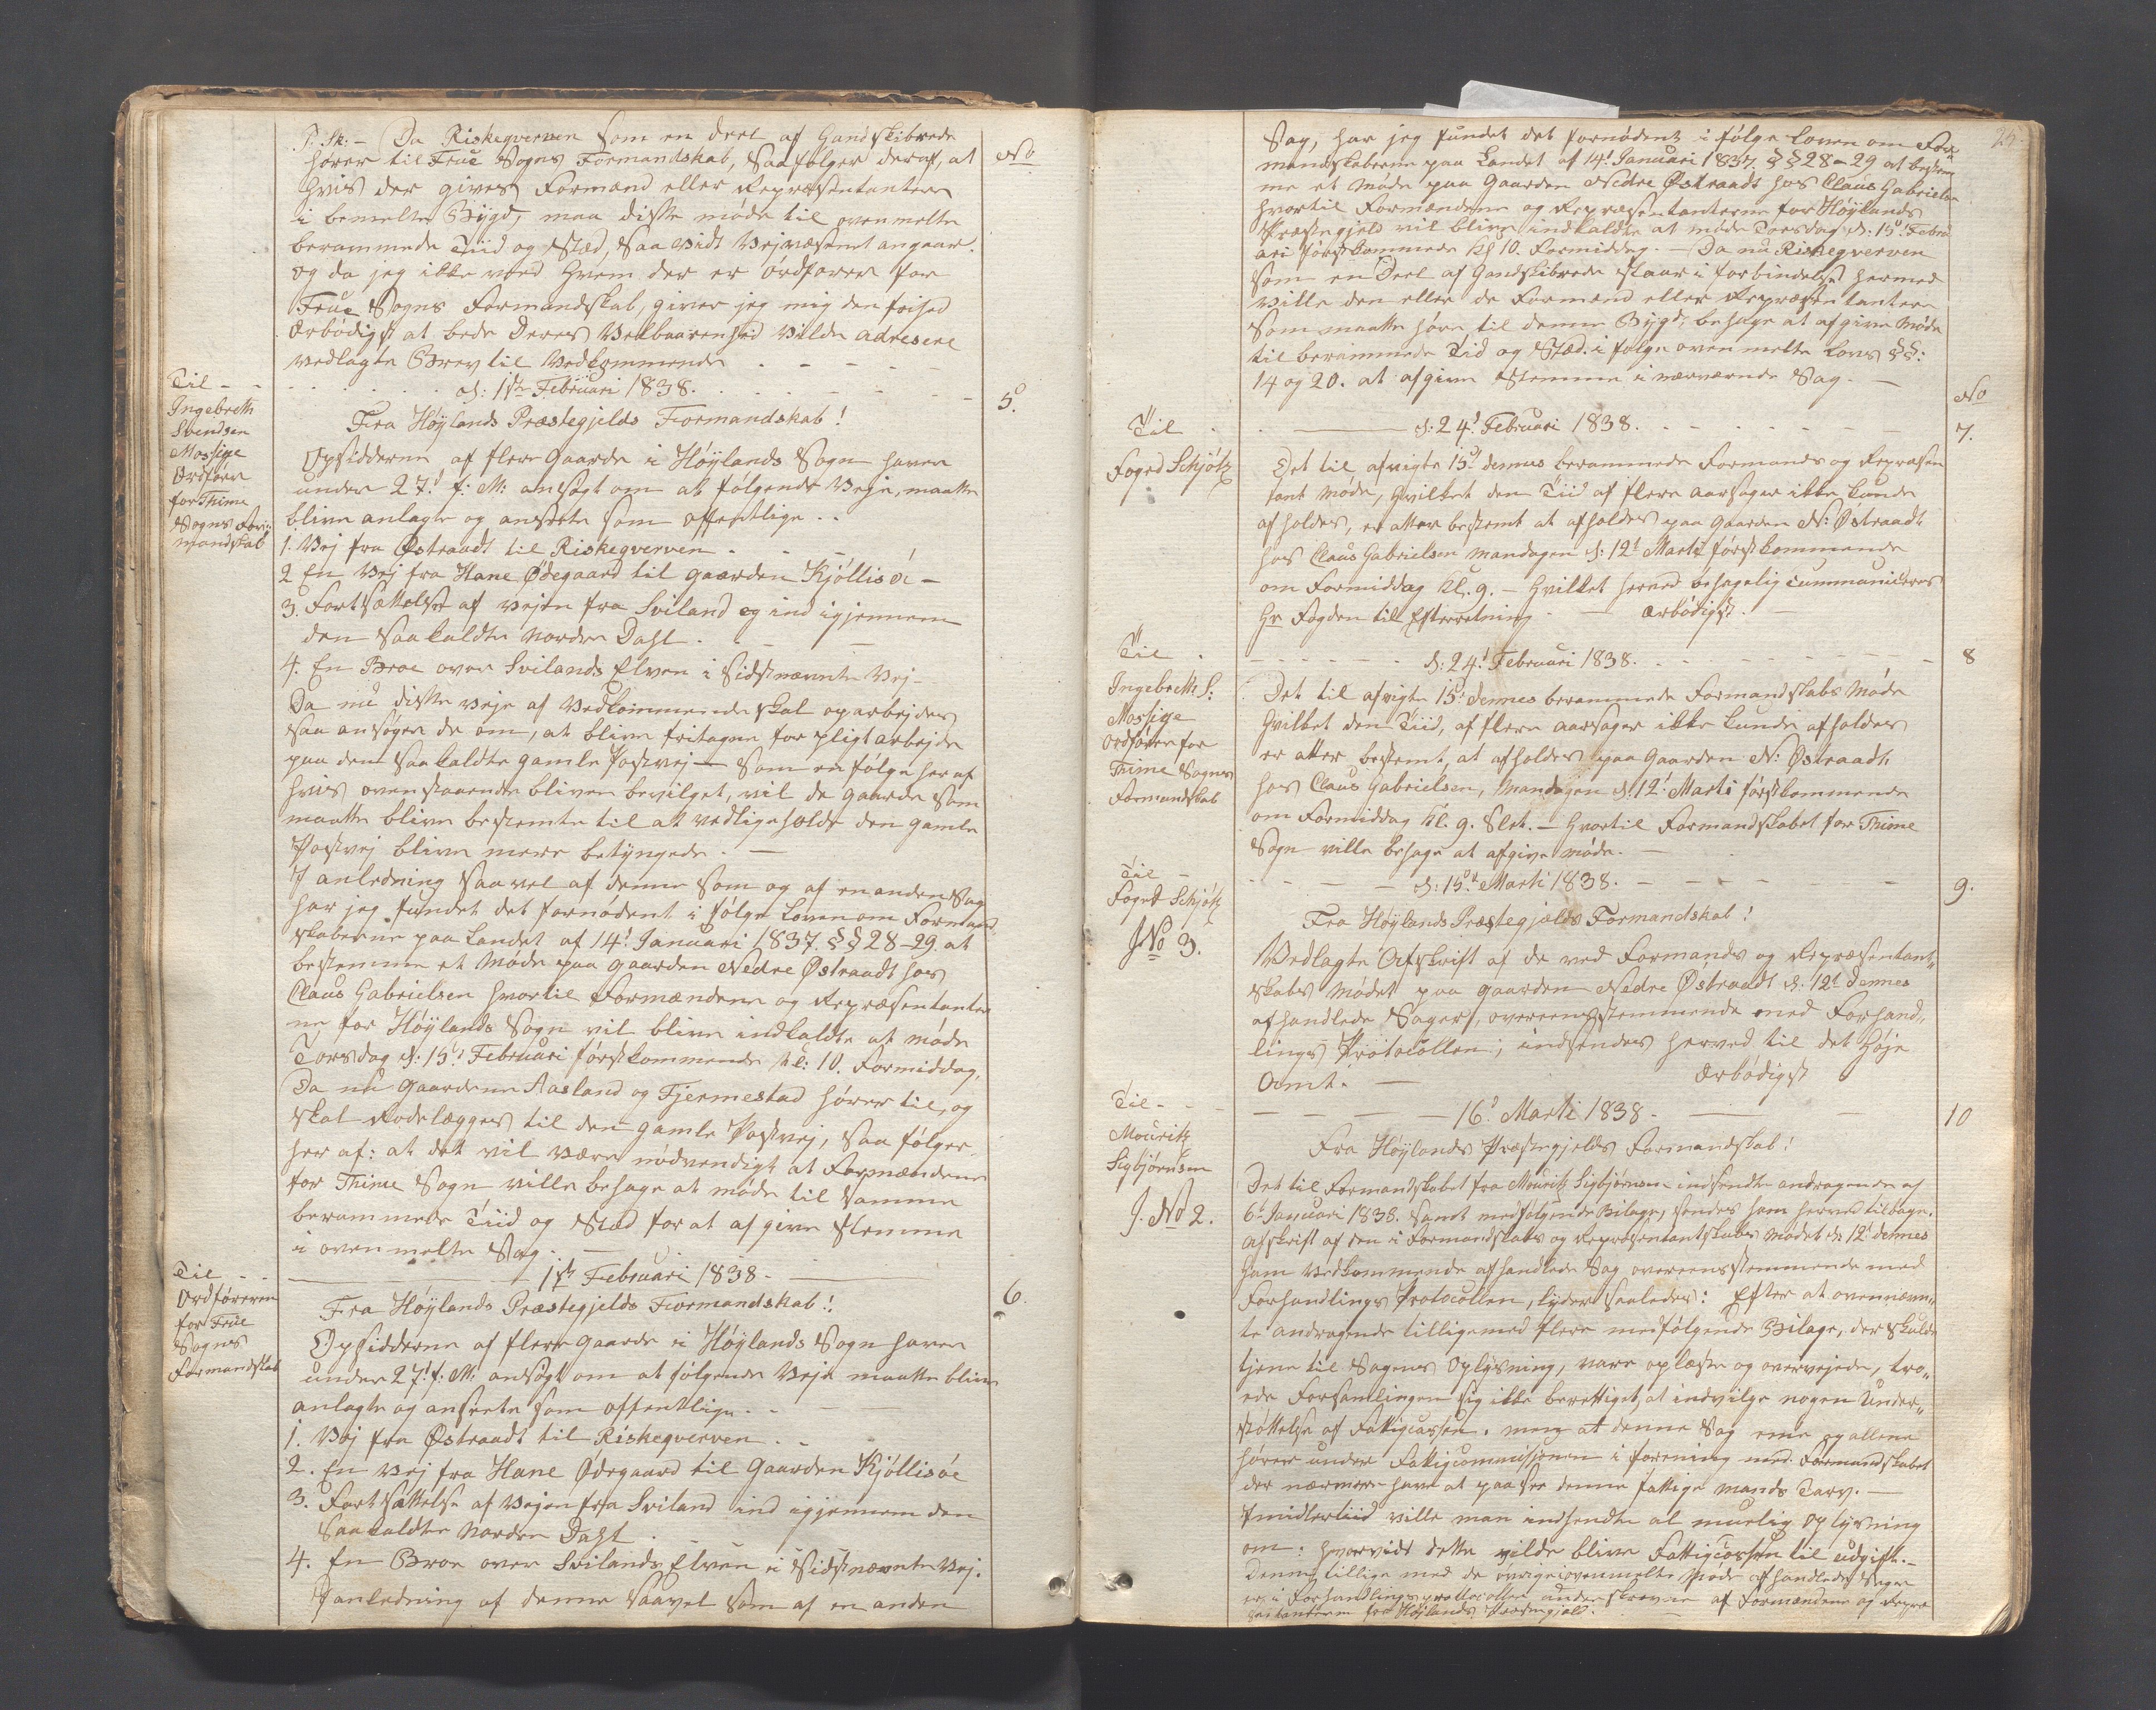 P: Sk: - Da Riskeqverven som en deel af Gandskibrede
hører til Frue Sogns Formandskab, saa følger deraf, at
hvis der gives Formænd eller Repræsentantere
i bemelte Bÿgd, maa disse møde til ovenmelte
berammede Tiid og Stæd, saa vidt Vejvæsenet angaar.
og da jeg ikke veed hvem der er Ordfører for
Frue Sogns Formandskab, giver jeg mig den friehed
ærbødigst at bede Deres Velbaarenhed vilde adresere
vedlagte Brev til Vedkommende
No
Til
Ingebreth
Svendsen
Mossige
Ordfører
for Thime
Sogns For-
mandskab
d: 1ste Februari 1838.
5.
Fra Høÿlands Præstegjelds Formandskab!
Opsidderne af flere Gaarde i Høÿlands Sogn haver
under 27d f: M: ansøgt om at følgende Veje, maatte
blive anlagte og ansete som offentlige.
1. Vej fra Østraadt til Riskeqverven
2 En Vej fra Hane Ødegaard til Gaarden Kjøllisø -
3. Fortsættelse af Vejen fra Sviland og ind igjennem
den saakaldte Norder Dahl.
4. En Broe over Svilands Elven i sidstnævnte Vej -
Da nu disse Veje af Vedkommende skal oparbejdes
saa ansøger de om, at blive fritagne for pligtarbejde
paa den saa kaldte gamle Postvej - som en følge her af
hvis ovenstaaende bliver bevilget, vil de Gaarde som
maatte blive bestemte til at vedligeholde den gamle
Postvej blive mere betÿngede. -
I anledning saavel af denne som og af en anden Sag
har jeg fundet det fornødent i følge Loven om Formand-
skaberne paa Landet af 14d Januari 1837. §§ 28-29. at
bestemme et Møde paa Gaarden Nedre Østraadt hos
Claus Gabrielsen hvortil Formændene og Repræsentanter
ne for Høÿlands Sogn vil blive indkaldte at møde
Torsdag d: 15d Februari førstkommende kl: 10. Formiddag.
Da nu Gaardene Aasland og Fjermestad hører til, og
skal Rodelægges til den gamle Postvej, saa følger
her af: at det vil være nødvendigt at Formændene
for Thime Sogn ville behage at møde til samme
berammede Tiid og Stæd for at af give stemme
i ovenmelte Sag. -
Til
Ordføreren
for Frue
Sogns
Formandskab
1ste Februari 1838.
6.
Fra Høÿlands Præstegjelds Formandskab!
Opsidderne af flere Gaarde i Høÿlands Sogn haver
under 27d f: M: ansøgt om at følgende Veje maatte blive
anlagte og ansete som offentlige.
1. Vej fra Østraadt til Riskeqverven
2. En Vej fra Hane Ødegaard til Gaarden Kjøllisøe
3. Fortsættelse af Vejen fra Sviland ind igjennem den
saakaldte Norder Dahl
4. En Broe over Svilands Elven i sidstnævnte Vej.
I anledning af denne saavel som af en anden
24.
Sag, har jeg fundet det fornødent i følge Loven om For-
mandskaberne paa Landet af 14d Januari 1837 §§ 28-29 at bestem
me et Møde paa Gaarden Nedre Østraadt hos Claus Gabrielsen
hvortil Formændene og Repræsentanterne for Høÿlands
Præstegjeld vil blive indkaldte at møde Torsdag d: 15d Febru
ari førstkommende kl 10. Formiddag. - Da nu Riskeqverven
som en Deel af Gandskibrede staar i forbindelse hermed
ville den eller de Formænd eller Repræsentantere
som maatte høre til denne Bÿgd, behage at afgive Møde
til berammede Tid og Stæd. i følge oven melte Lovs §§:
14 og 20. at afgive Stemme i nærværende Sag. -
No
Til
Foged Schjøtz
d: 24d Februari 1838.
7.
Det til afvigte 15d dennes berammede Formands og Repræsen
tant Møde, hvilket den Tiid af flere aarsager ikke kunde
afholdes, er atter bestemt at afholdes paa Gaarden N: Østraadt
hos Claus Gabrielsen Mandagen d: 12d Marti førstkommende
om Formiddag Kl. 9. - hvilket herved behagelig Cummuniceres
Hr Fogden til Efterretning - Ærbødigst. -
Til
Ingebreth S:
Mossige
Ordfører for
Thime Sogns
Formandskab
d: 24d Februari 1838.
8
Det til afvigte 15d dennes berammede Formandskabs Møde
hvilket den Tiid, af flere aarsager ikke kunde afholdes
er atter bestemt, at afholdes paa Gaarden N: Østraadt
hos Claus Gabrielsen, Mandagen d: 12d Marti førstkommende
om Formiddag Kl. 9. Slet. - hvortil Formandskabet for Thime
Sogn ville behage at afgive møde. -
Til
Foged Schjøtz
J No 3.
d: 15d Marti 1838.
9.
Fra Høÿlands Præstegjelds Formandskab!
Vedlagte Afskrift af de ved Formands og Repræsentant-
skabs Mødet paa Gaarden Nedre Østraadt d: 12d dennes
afhandlede Sager, overeensstemmende med Forhand-
lings Protocollen; indsendes herved til det høje
Amt. - Ærbødigst
Til
Mouritz
Sigbjørnsen
J. No 2.
16d Marti 1838.
10
Fra Høÿlands Præstegjelds Formandskab!
Det til Formandskabet fra Mouritz Sigbjørnsen indsendte andragende af
6d Januari 1838. samt medfølgende Bilage, sendes ham herved tilbage.
Afskrift af den i Formandskabs og Repræsentantskabs Mødet d: 12d dennes
ham vedkommende afhandlede Sag overeensstemmende med
Forhandlings Protocollen, lyder saaledes: Efter at ovennævn-
te andragende tilligemed flere medfølgende Bilage, der skulde
tjene til Sagens Oplÿsning, vare oplæste og overvejede, tro-
ede Forsamlingen sig ikke berettiget, at indvilge nogen Under-
støttelse af Fattigcassen. meng at denne Sag ene og allene
hører under Fattigcommissionen i forening med Formandskabet
der nærmere have at paasee denne fattige Mands Tarv. -
Imidlertiid ville man indhendte al muelig Oplÿsning
om: hvorvidt dette vilde blive Fattigcassen til udgift. -
Denne tillige med de øvrige i ovenmelte Møde afhandlede Sager
er i Forhandlingsprottocollen underskrevne af Formændene og Repræ
sentanterne for Høÿlands Præstegjeld.